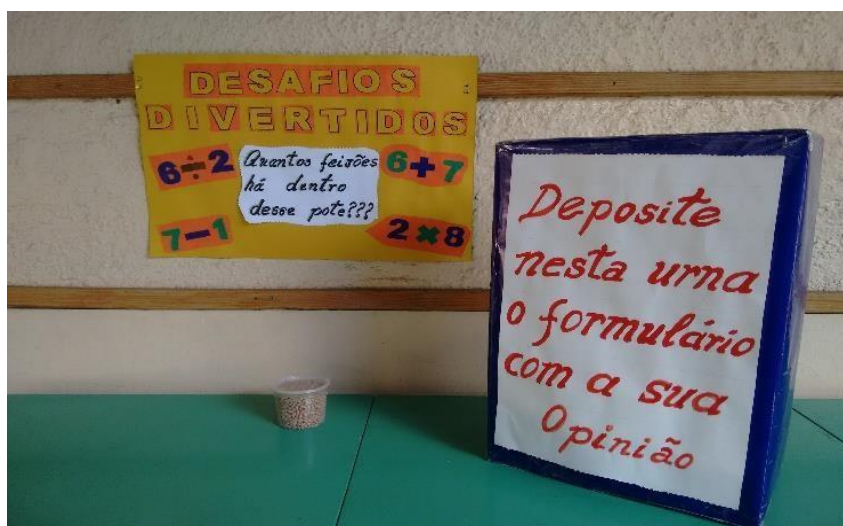 DESAFIOS
DIVERTIDOS
6÷2
Quantos feijões
há dentro
desse pote???
6+7
7-1
2×8
Deposite
nesta urna
o formulário
com a sua
Opinião